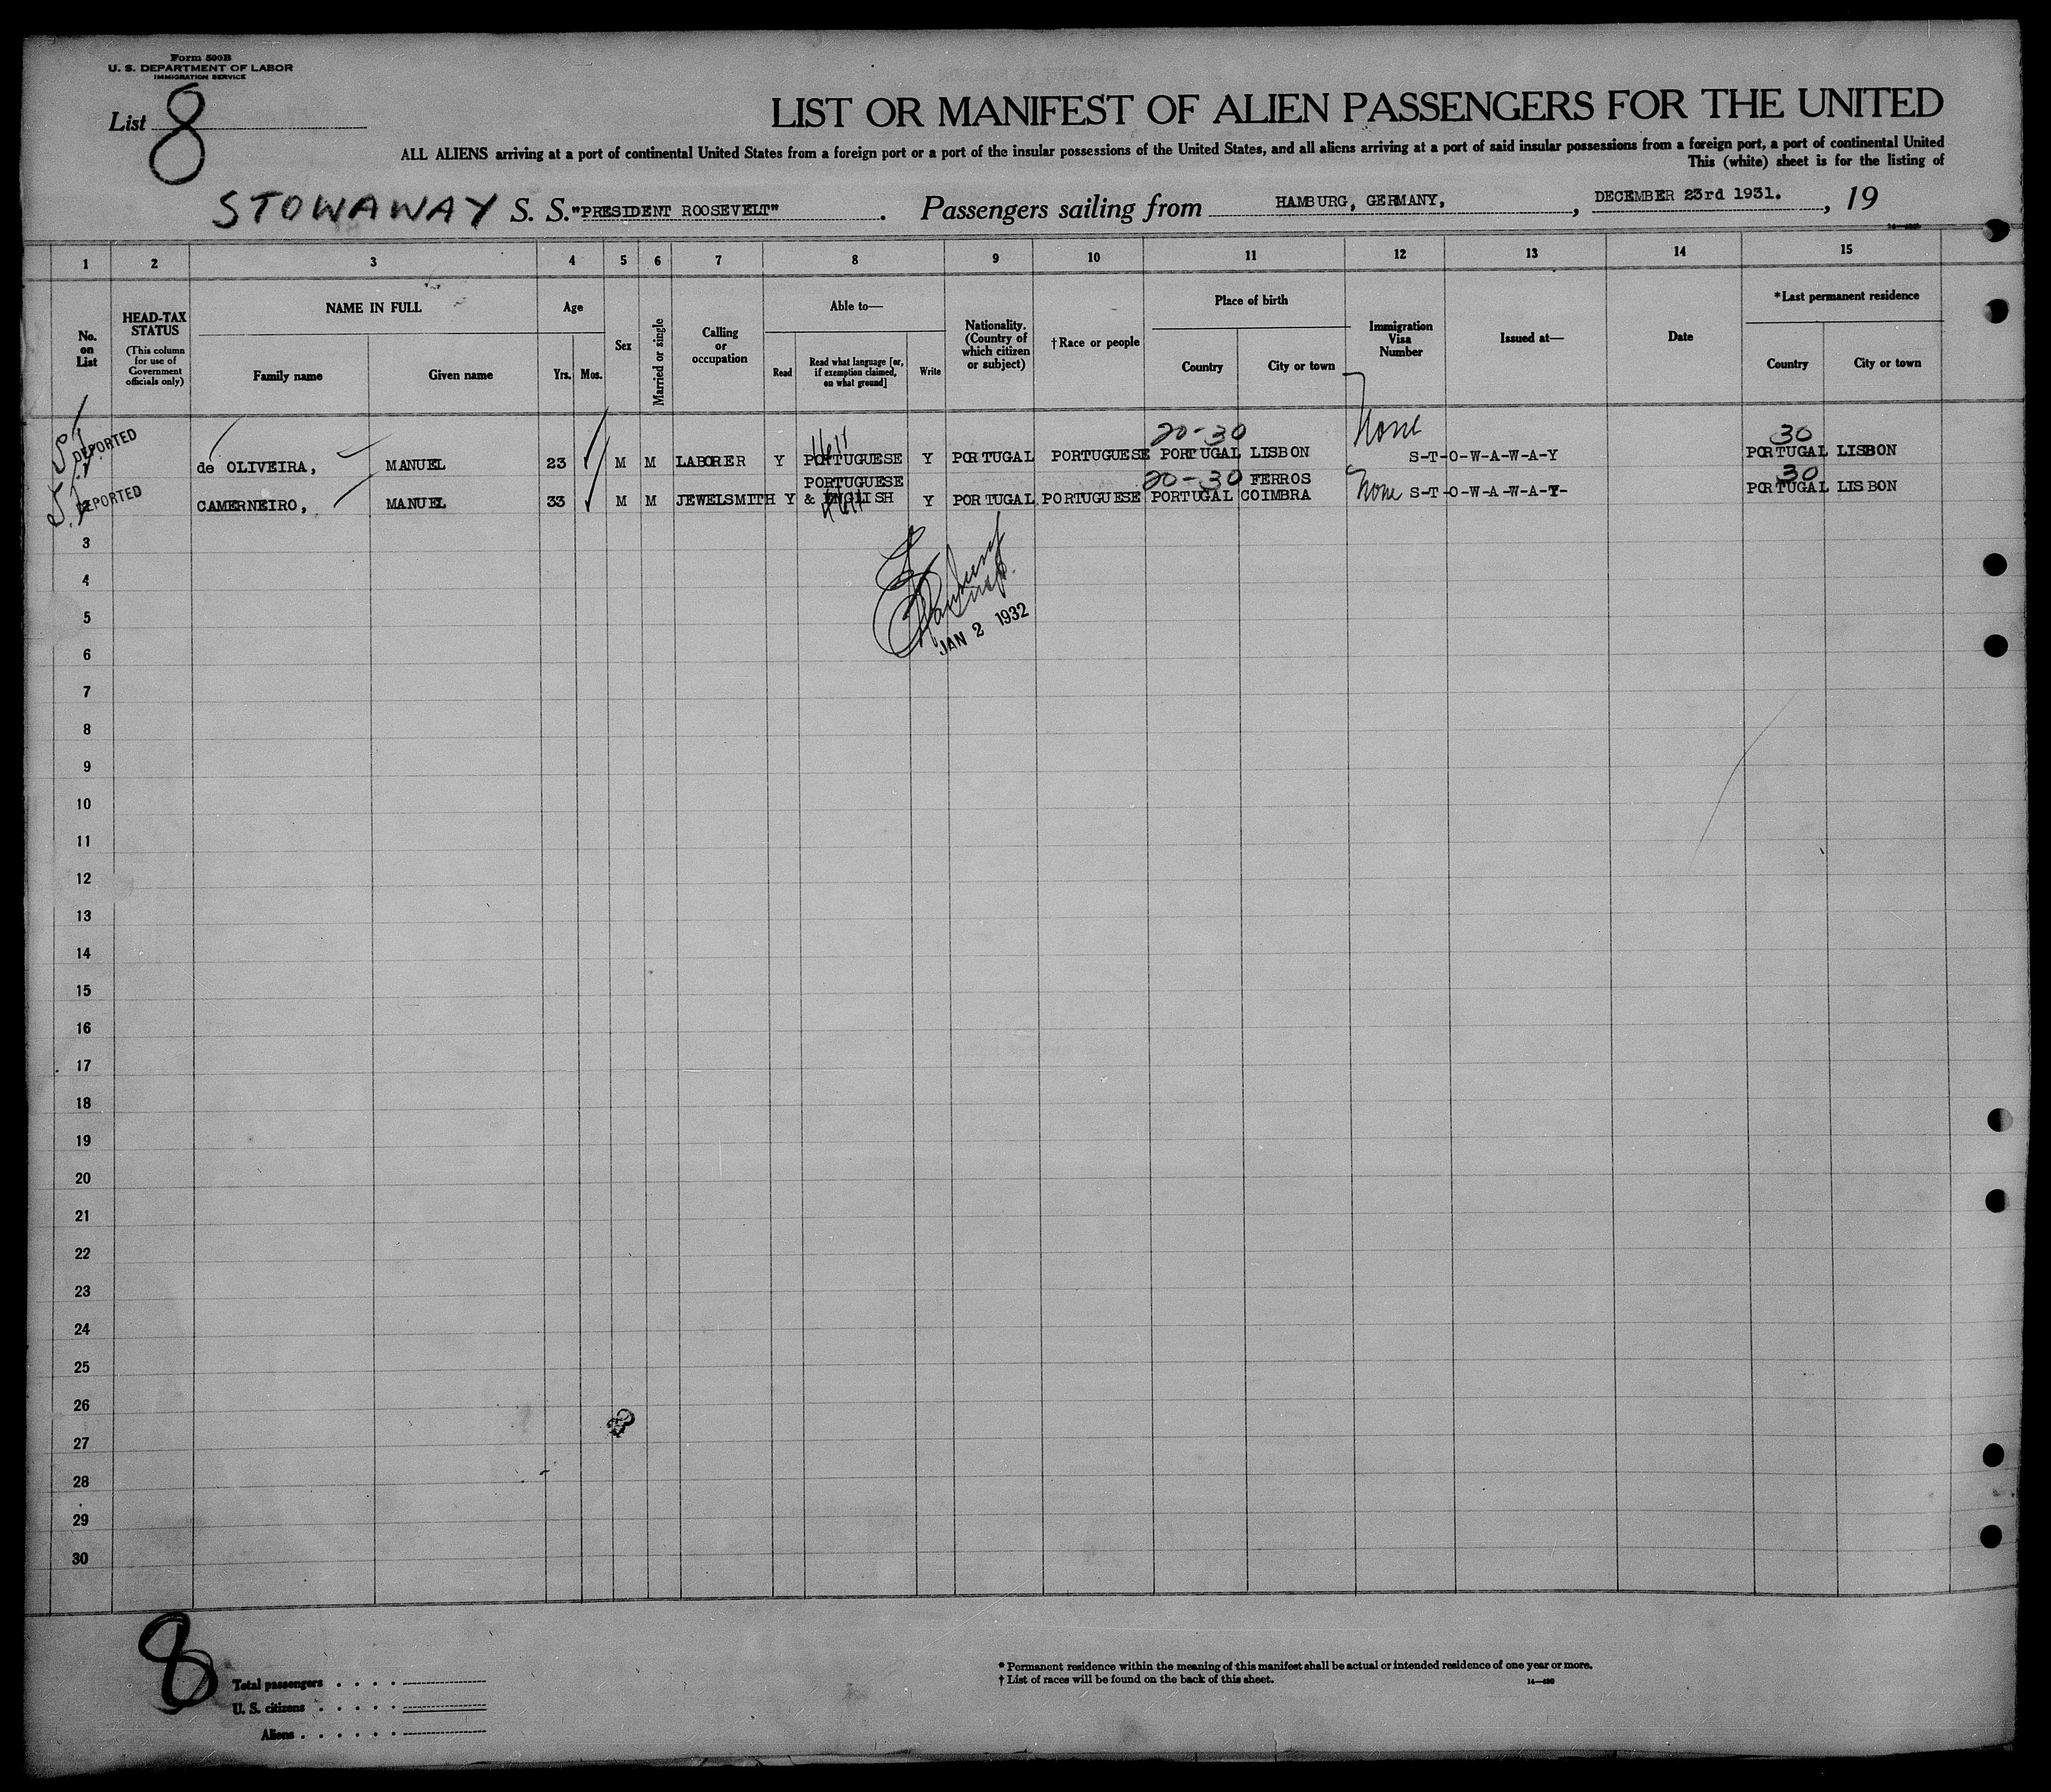 Form 500B
U. S. DEPARTMENT OF LABOR
IMMIGRATION SERVICE
List 8
LIST OR MANIFEST OF ALIEN PASSENGERS FOR THE UNITED
ALL ALIENS arriving at a port of continental United States from a foreign port or a port of the insular possessions of the United States, and all aliens arriving at a port of said insular possessions from a foreign port, a port of continental United
This (white) sheet is for the listing of
STOWAWAY S. S. "PRESIDENT ROOSEVELT" . Passengers sailing from HAMBURG, GERMANY, , DECEMBER 23rd 1931. , 19
1 2 3 4 5 6 7 8 9 10 11 12 13 14 15
No. on List
HEAD-TAX STATUS
(This column for use of Government officials only)
NAME IN FULL
Family name
Given name
Age
Yrs.
Mos.
Sex
Married or single
Calling or occupation
Able to—
Read
Read what language [or, if exemption claimed, on what ground]
Write
Nationality. (Country of which citizen or subject)
†Race or people
Place of birth
Country
City or town
Immigration Visa Number
Issued at—
Date
*Last permanent residence
Country
City or town
20-30 None 30
DEPORTED de OLIVEIRA, MANUEL 23 M M LABORER Y PORTUGUESE Y PORTUGAL PORTUGUESE PORTUGAL LISBON S-T-O-W-A-W-A-Y PORTUGAL LISBON
PORTUGUESE 20-30 FERROS 30
DEPORTED CAMERNEIRO, MANUEL 33 M M JEWELSMITH Y & ENGLISH Y PORTUGAL PORTUGUESE PORTUGAL COIMBRA None S-T-O-W-A-W-A-Y- PORTUGAL LISBON
3
4
5
JAN 2 1932
6
7
8
9
10
11
12
13
14
15
16
17
18
19
20
21
22
23
24
25
26
27
28
29
30
8
Total passengers . . . .
U. S. citizens . . . . .
Aliens . . . . . .
* Permanent residence within the meaning of this manifest shall be actual or intended residence of one year or more.
† List of races will be found on the back of this sheet.